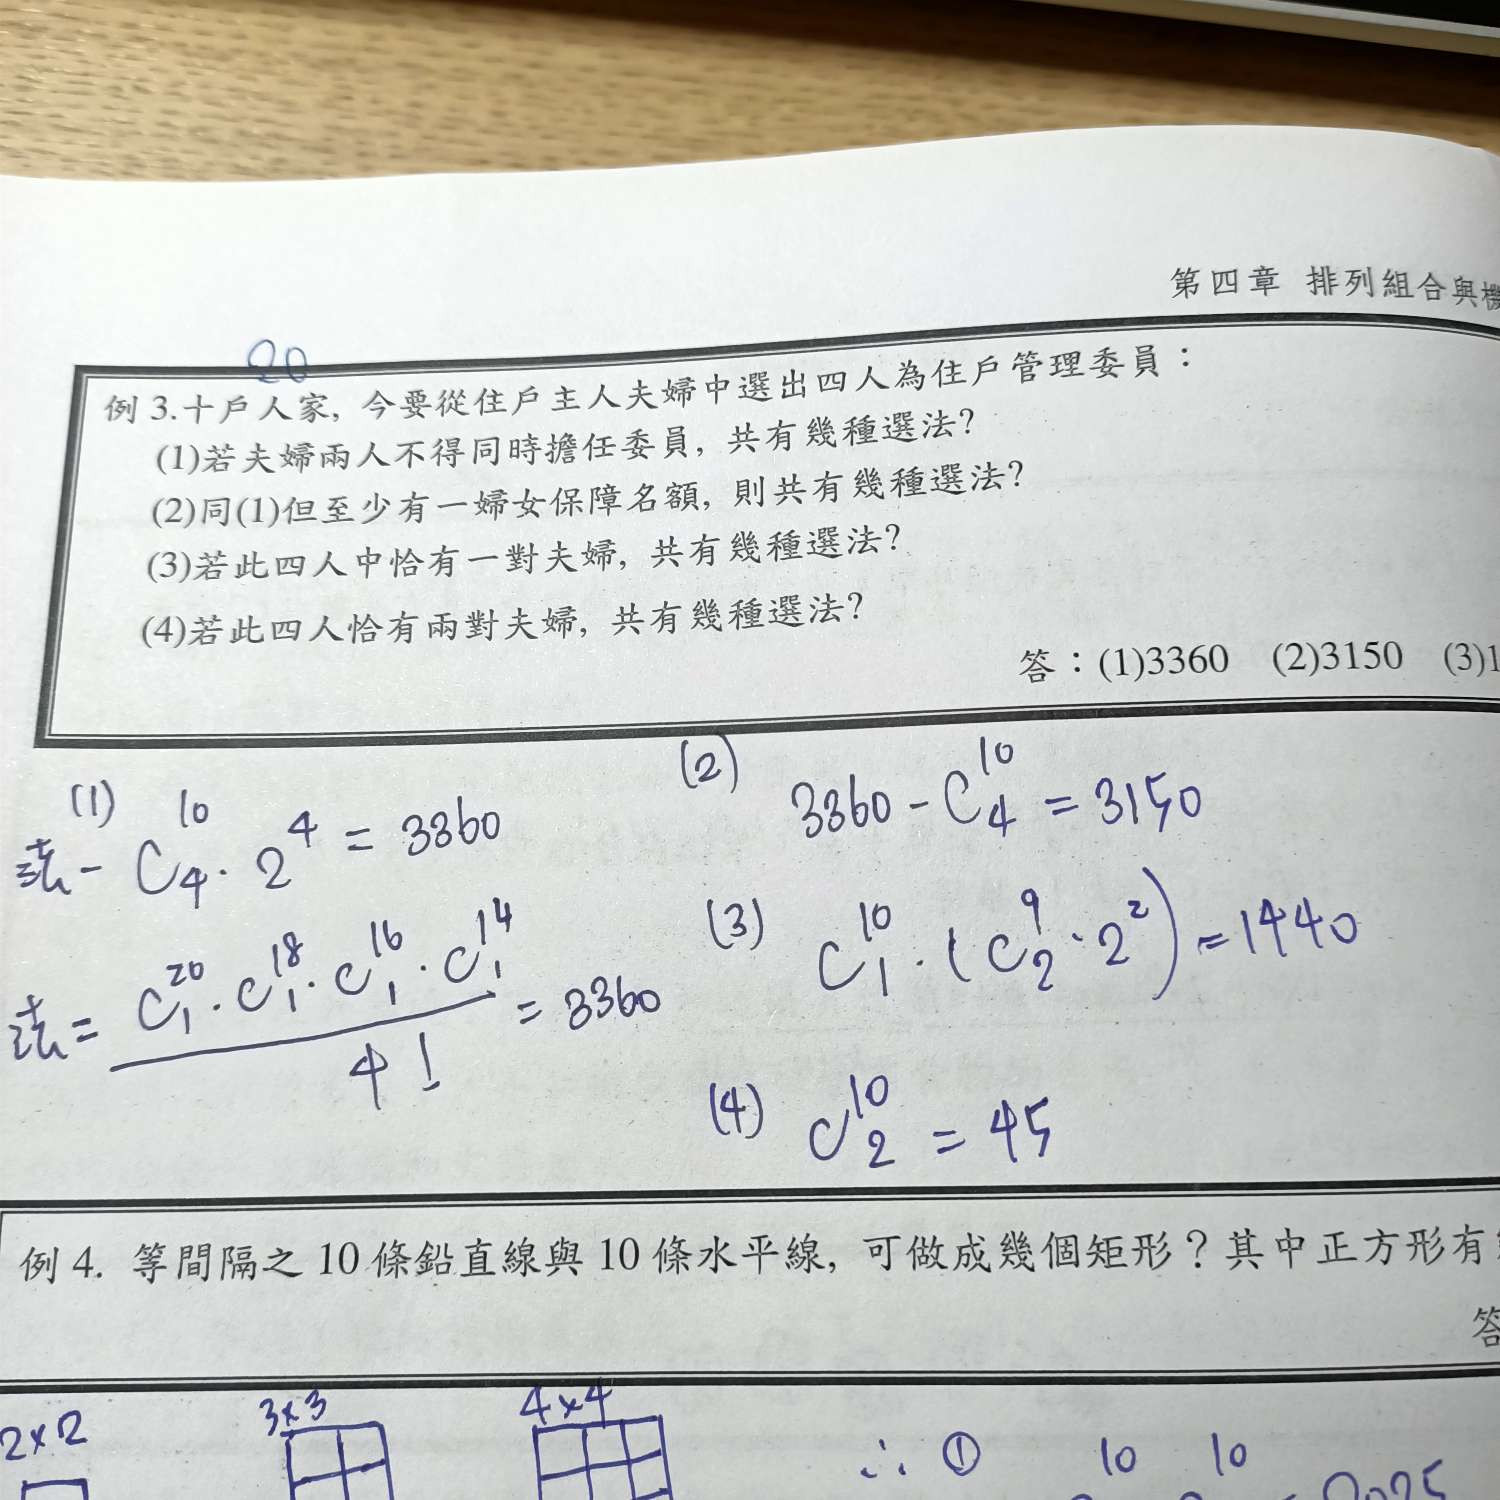 第四章 排列組合與機
20
例 3.十戶人家, 今要從住戶主人夫婦中選出四人為住戶管理委員：
(1)若夫婦兩人不得同時擔任委員, 共有幾種選法?
(2)同(1)但至少有一婦女保障名額, 則共有幾種選法?
(3)若此四人中恰有一對夫婦, 共有幾種選法?
(4)若此四人恰有兩對夫婦, 共有幾種選法?
答：(1)3360 (2)3150 (3)1
(1)
法一 C₄¹⁰ · 2⁴ = 3360
法二 C₁²⁰ · C₁¹⁸ · C₁¹⁶ · C₁¹⁴ / 4! = 3360
(2) 3360 - C₄¹⁰ = 3150
(3) C₁¹⁰ · (C₂⁹ · 2²) = 1440
(4) C₂¹⁰ = 45
例 4. 等間隔之 10 條鉛直線與 10 條水平線, 可做成幾個矩形？其中正方形有
答
2×2 3×3 4×4
∴ ① 10 10
= 2025